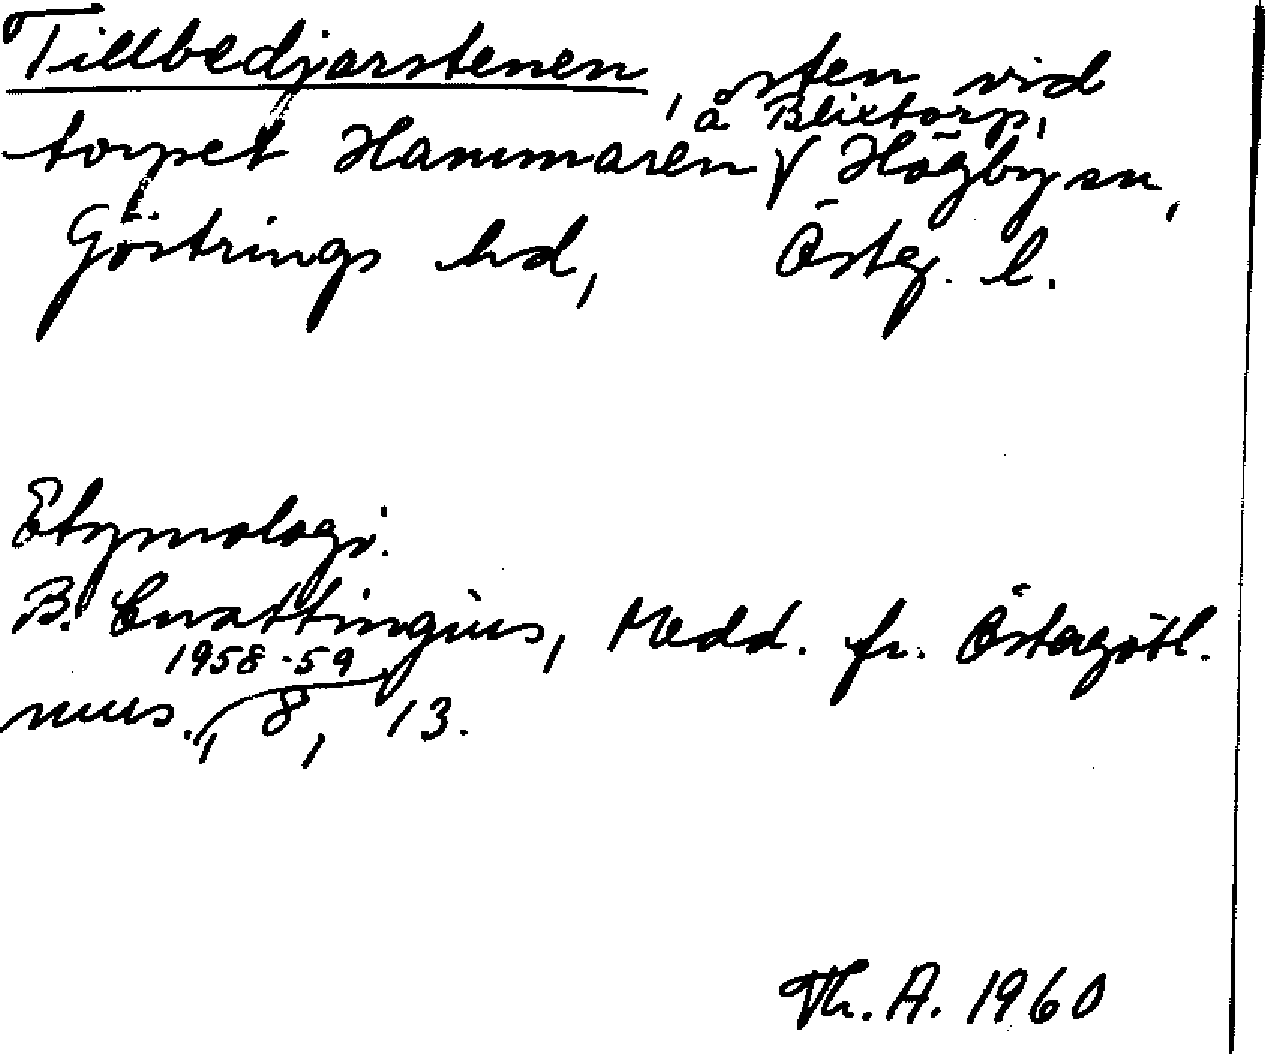 Tillbedjarstenen, sten vid
torpet Hammaren å Blixtorp, Högby sn,
Göstrings hd, Österg. l.
Etymologi.
B. Cnattingius, Medd. fr. Östergötl.
mus., 1958-59, 8, 13.
Th. A. 1960